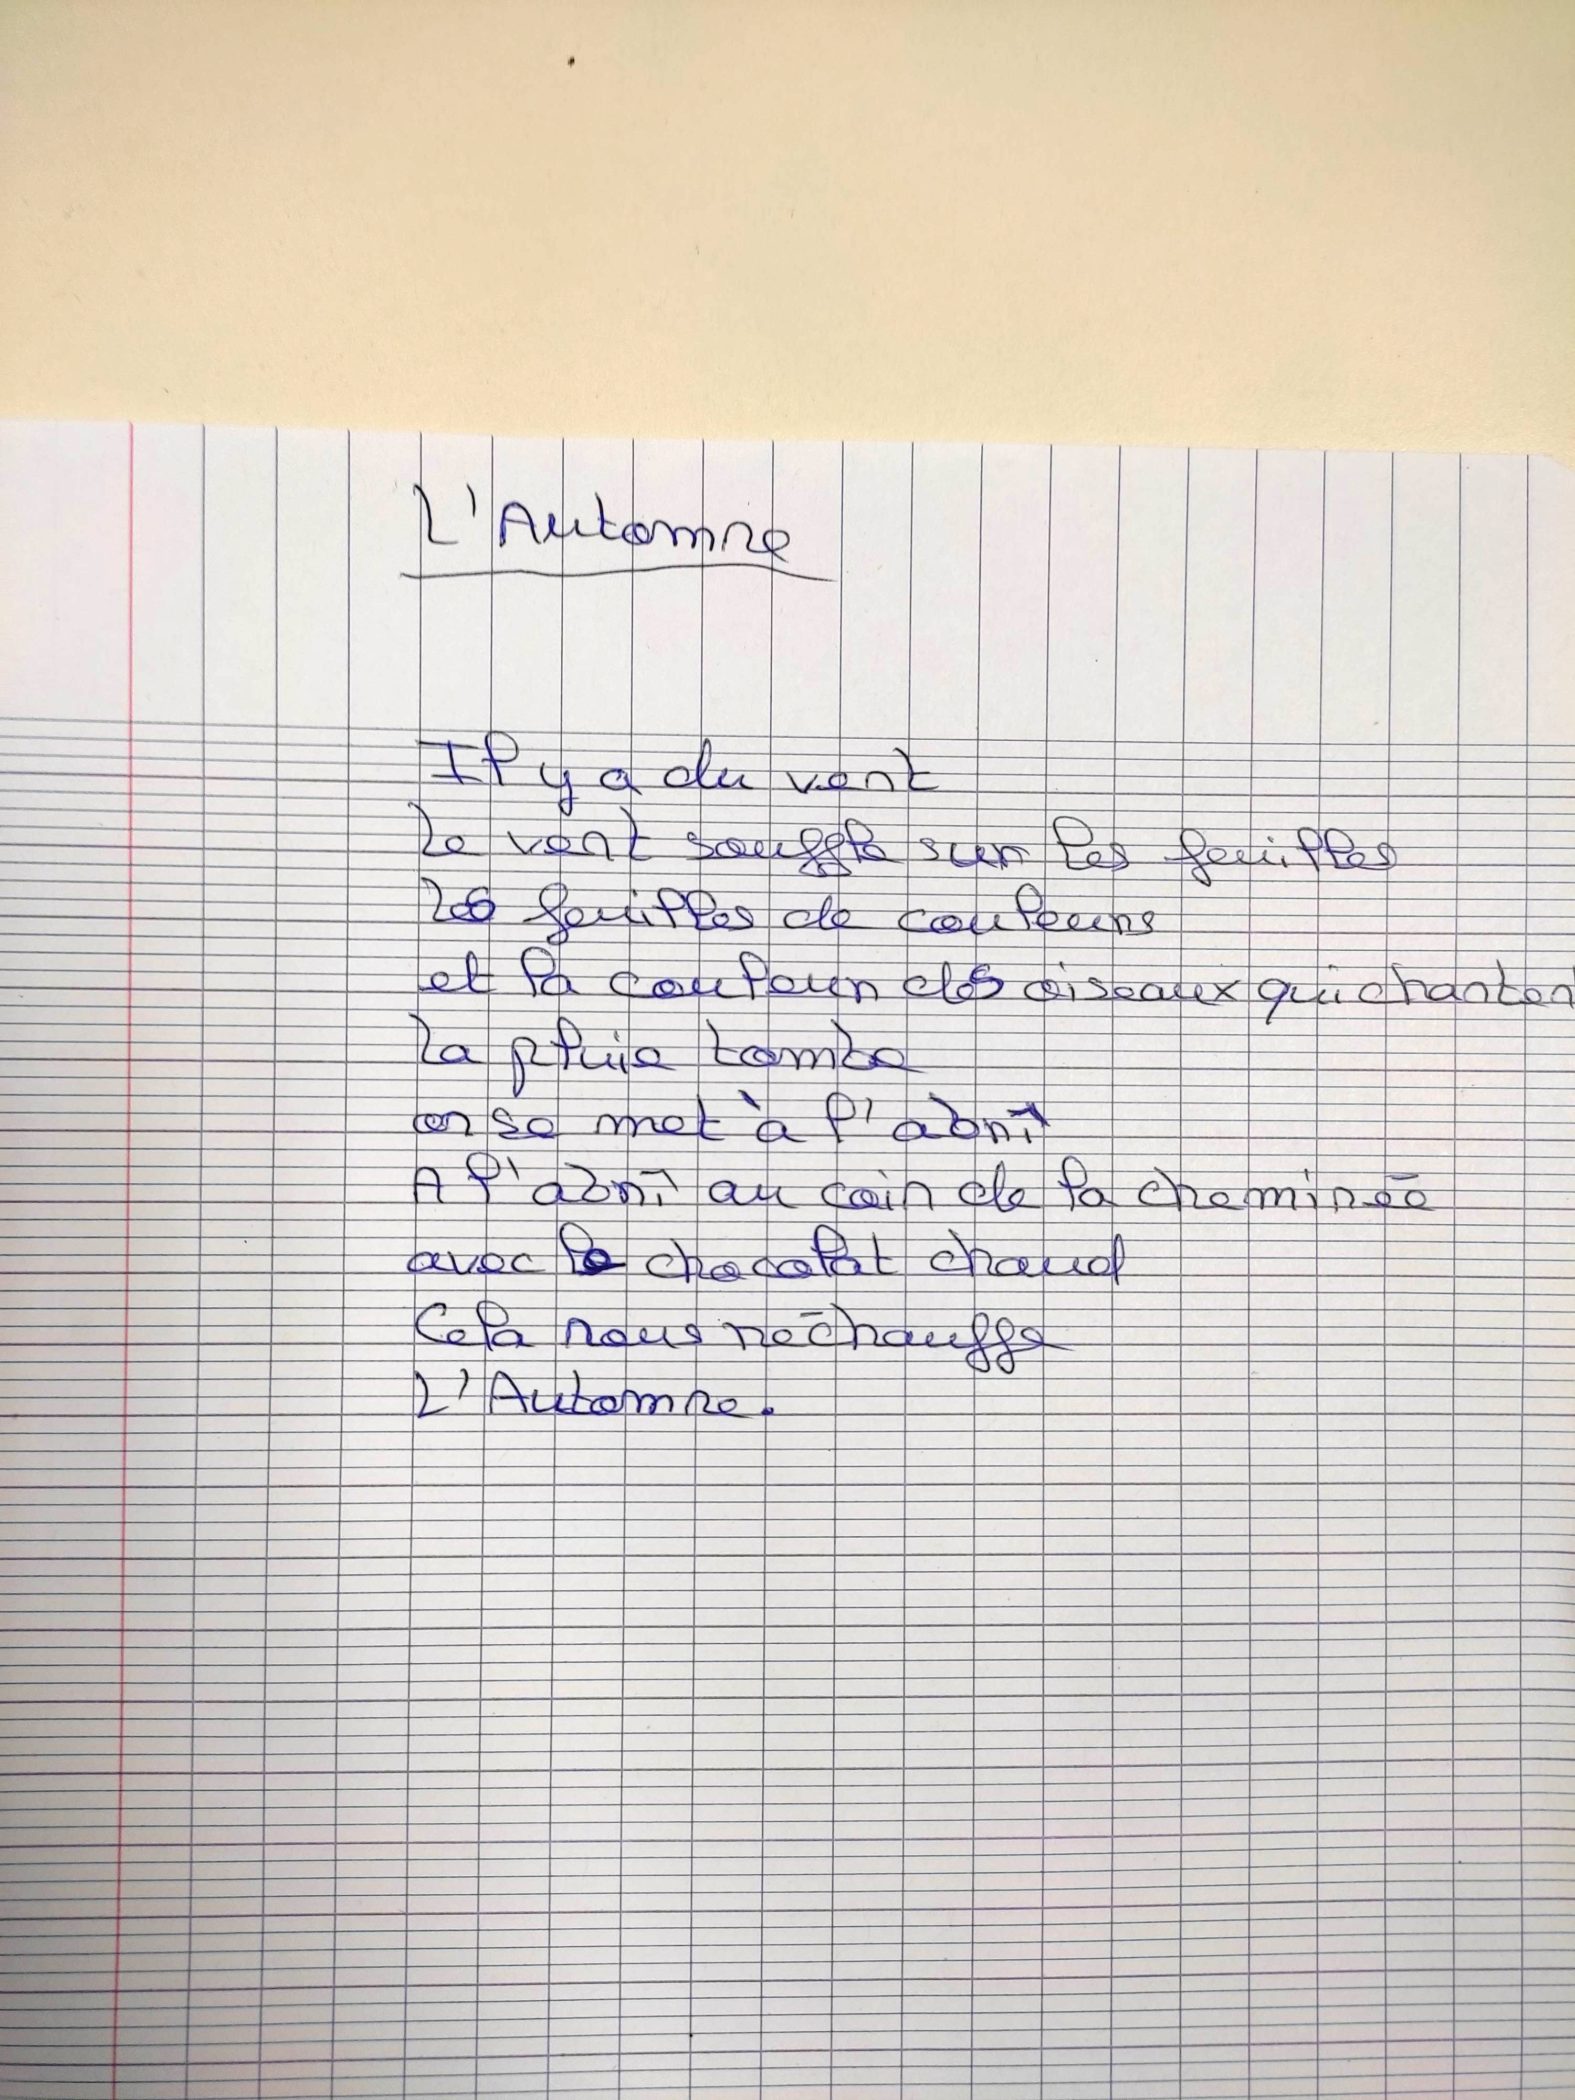 L'Automne
Il y a du vent
Le vent souffle sur les feuilles
Les feuilles de couleurs
et la couleur des oiseaux qui chantent
La pluie tombe
on se met à l'abri
A l'abri au coin de la cheminée
avec le chocolat chaud
Cela nous réchauffe
L'Automne.